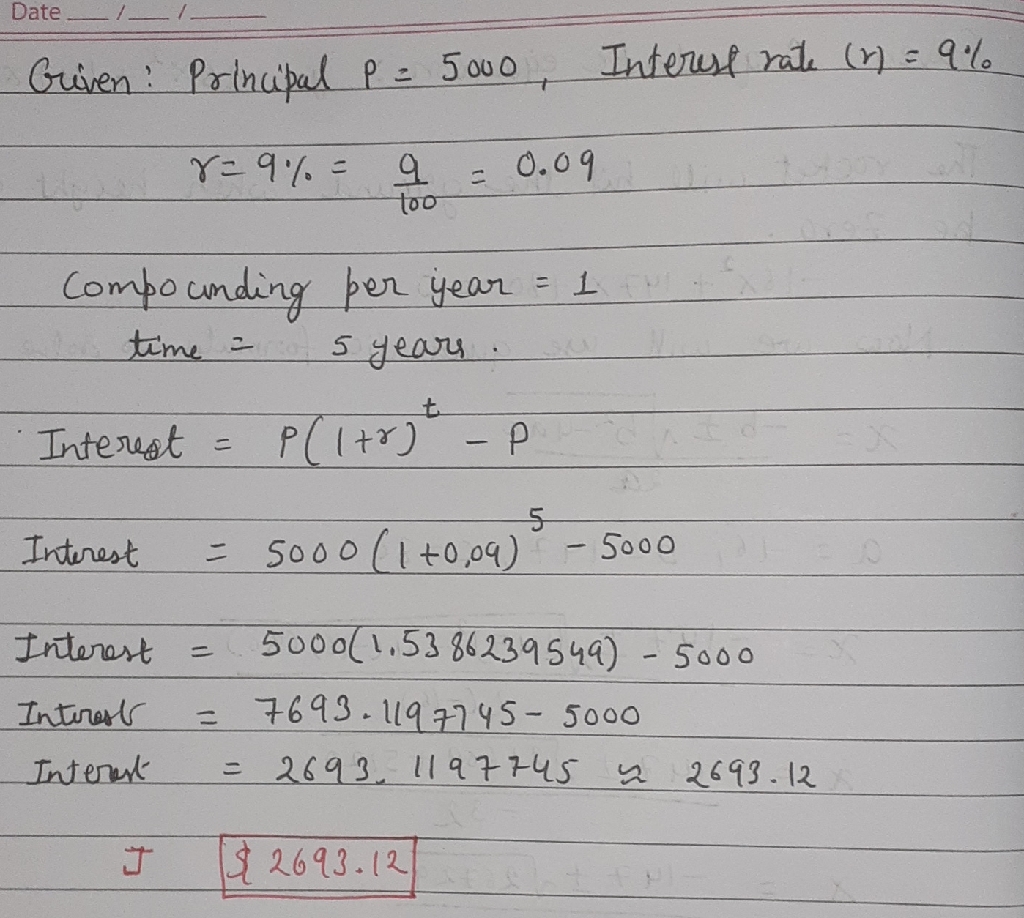 Date __/__/____
Given: Principal P = 5000, Interest rate (r) = 9%
r = 9% = 9/100 = 0.09
Compounding per year = 1
time = 5 years.
Interest = P(1+r)^t - P
Interest = 5000(1+0.09)^5 - 5000
Interest = 5000(1.5386239549) - 5000
Interest = 7693.1197745 - 5000
Interest = 2693.1197745 ≈ 2693.12
I $2693.12